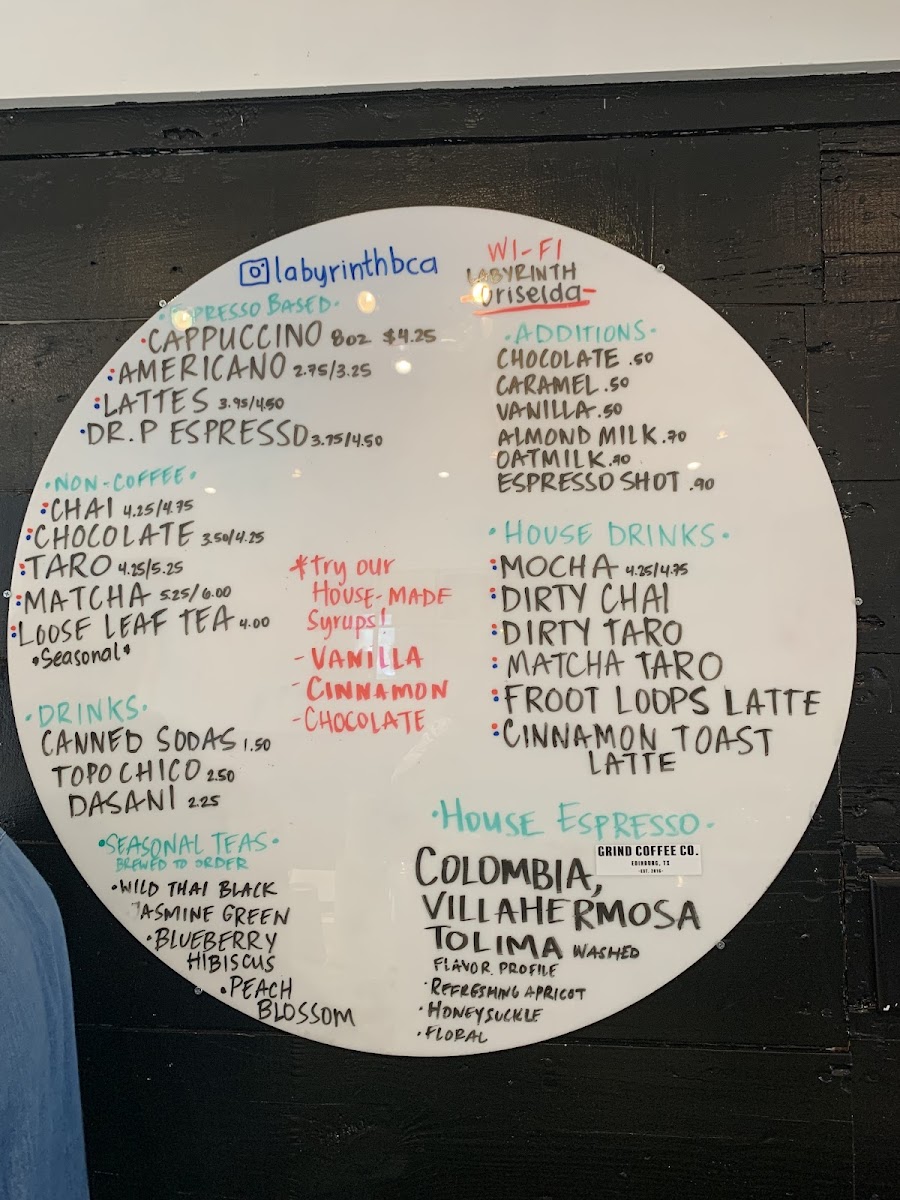 labyrinthbca
ESPRESSO BASED·
·CAPPUCCINO 8oz $4.25
:AMERICANO 2.75/3.25
:LATTES 3.95/4.50
·DR. P ESPRESSO 3.75/4.50
·NON-COFFEE·
:CHAI 4.25/4.75
:CHOCOLATE 3.50/4.25
:TARO 4.25/5.25
:MATCHA 5.25/6.00
:LOOSE LEAF TEA 4.00
•Seasonal•
·DRINKS·
CANNED SODAS 1.50
TOPO CHICO 2.50
DASANI 2.25
·SEASONAL TEAS·
BREWED TO ORDER
·WILD THAI BLACK
JASMINE GREEN
·BLUEBERRY
HIBISCUS
·PEACH
BLOSSOM
*try our
HOUSE-MADE
Syrups!
- VANILLA
- CINNAMON
- CHOCOLATE
WI-FI
LABYRINTH
Griselda
·ADDITIONS·
CHOCOLATE .50
CARAMEL .50
VANILLA .50
ALMOND MILK .70
OATMILK
ESPRESSO SHOT .90
·HOUSE DRINKS·
:MOCHA 4.25/4.75
:DIRTY CHAI
:DIRTY TARO
:MATCHA TARO
:FROOT LOOPS LATTE
:CINNAMON TOAST
LATTE
·HOUSE ESPRESSO·
GRIND COFFEE CO.
EDINBURG, TX
COLOMBIA,
VILLAHERMOSA
TOLIMA WASHED
FLAVOR PROFILE
·REFRESHING APRICOT
·HONEYSUCKLE
·FLORAL